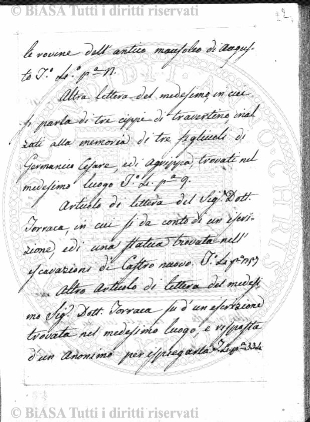 © BiASA Tutti i diritti riservati
le rovine dell' antico mausoleo di Augus-
to T.º
Altra lettera del medesimo, in cui
si parla di tre cippi di travertino inal
zati alla memoria di tre figliuoli di
Germanico Cesare, ed Agrippa, trovati nel
medesimo luogo T.º
Articolo di lettera del Sig.r Dott.
Torraca, in cui si da conto di un iscri-
zione, ed una statua trovata nell'
escavazioni di Castro nuovo. T.
Altro Articolo di lettera del medesi
mo Sig.r Dott. Torraca su d'un iscrizione
trovata nel medesimo luogo, e risposta
d'un Anonimo per ispiegarla 334
© BiASA Tutti i diritti riservati